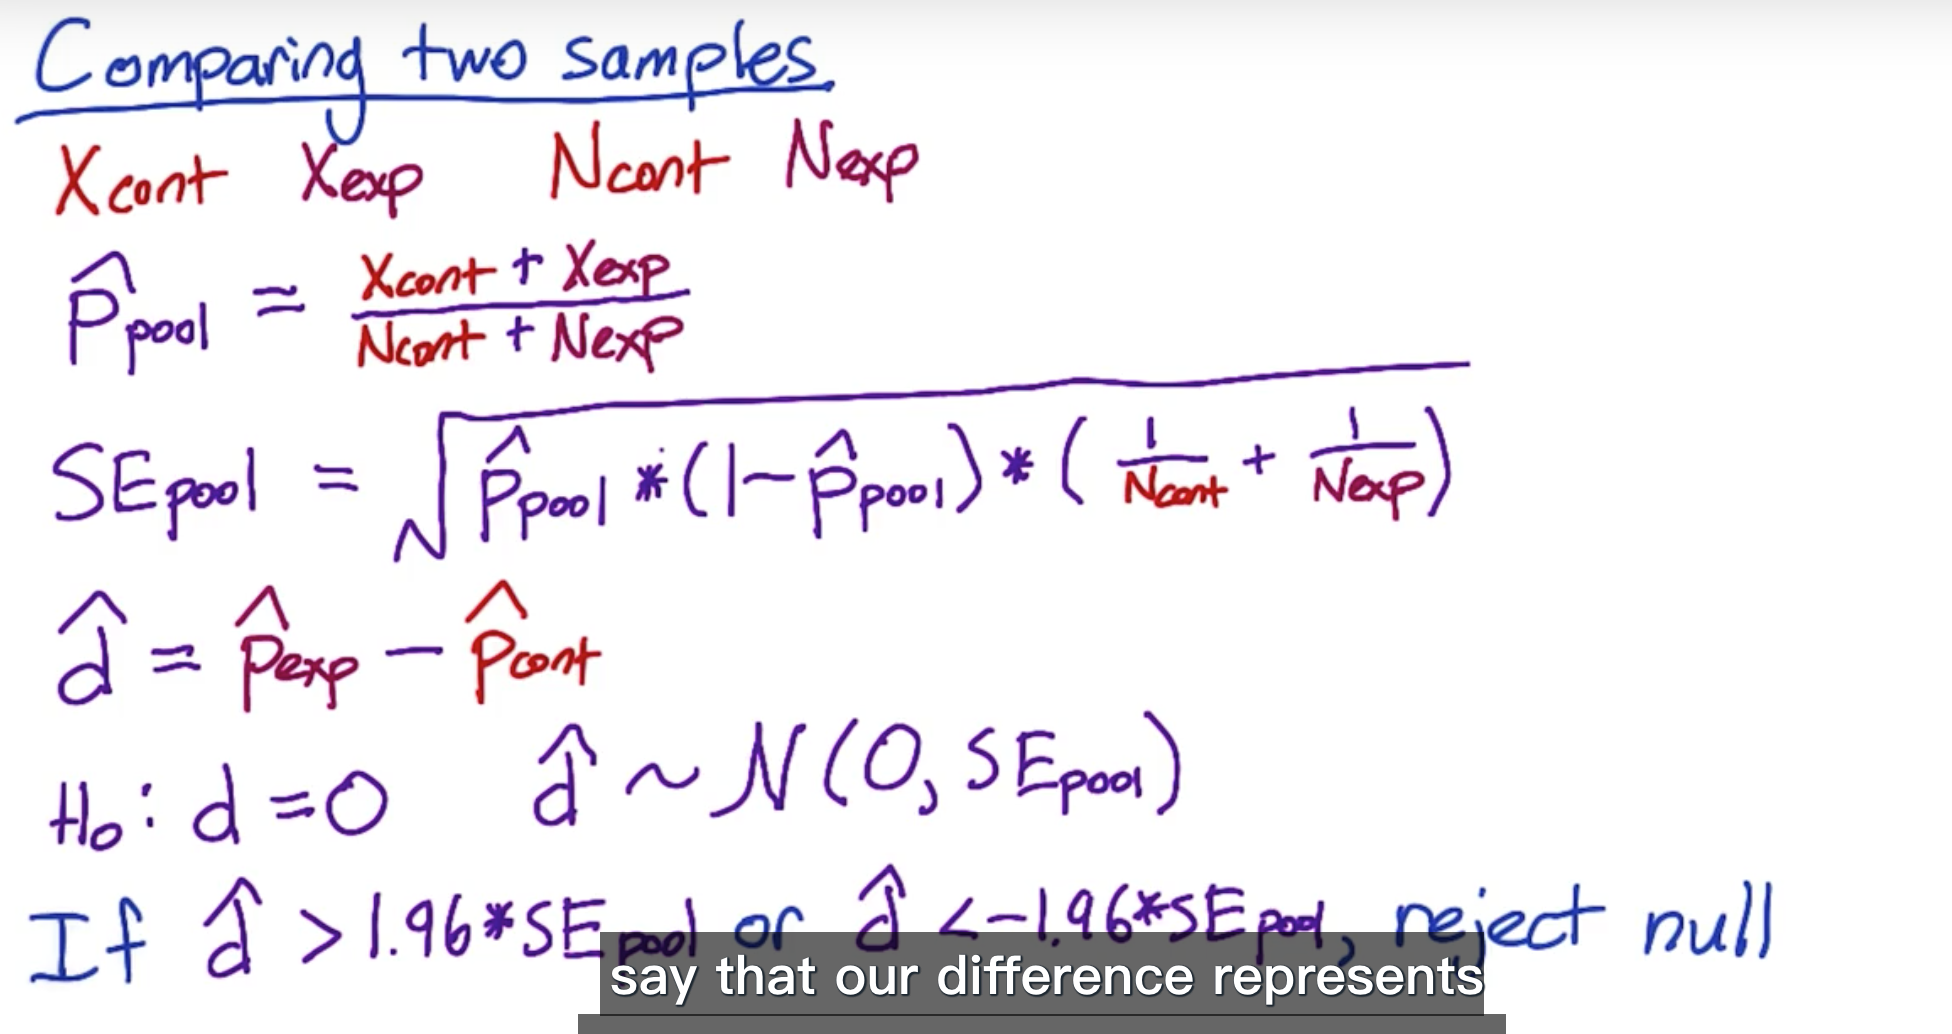 Comparing two samples
Xcont Xexp Ncont Nexp
p̂pool = (Xcont + Xexp) / (Ncont + Nexp)
SEpool = √(p̂pool * (1 - p̂pool) * (1/Ncont + 1/Nexp))
d̂ = p̂exp - p̂cont
H₀: d = 0 d̂ ~ N(0, SEpool)
If d̂ > 1.96*SEpool or d̂ < -1.96*SEpool, reject null
say that our difference represents